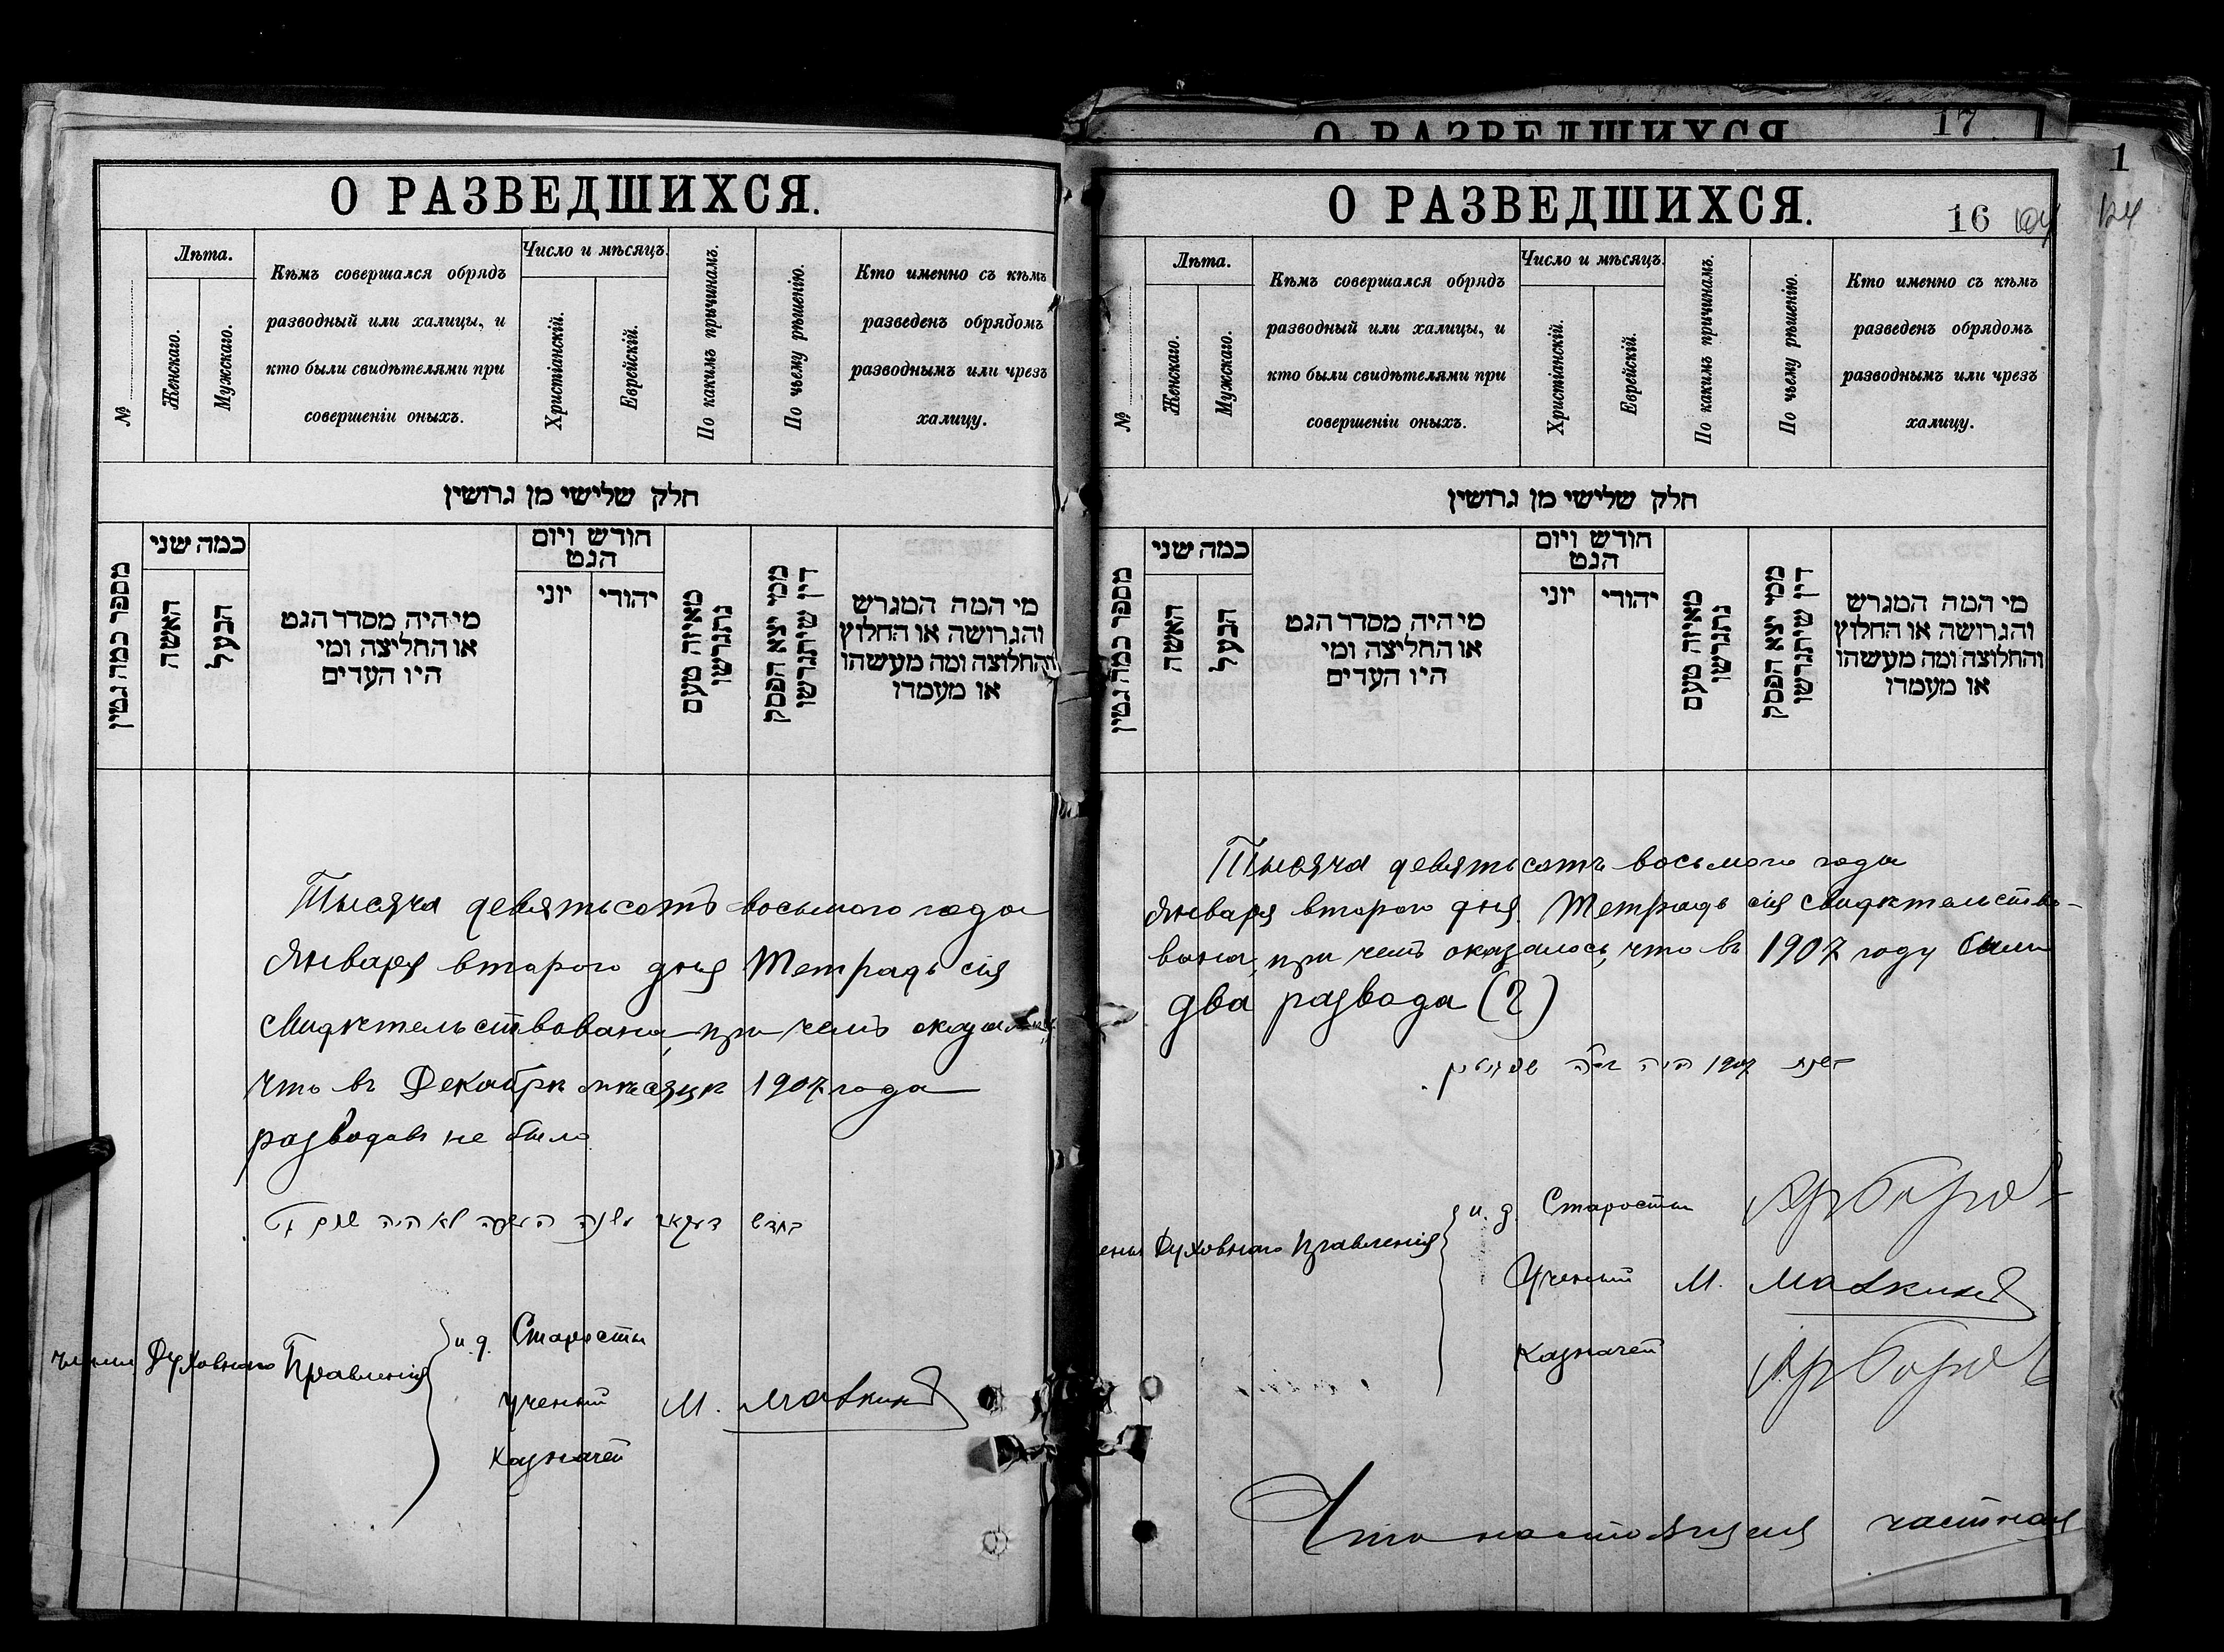 О РАЗВЕДШИХСЯ.
№
Лѣта.
Женскаго.
Мужскаго.
Кѣмъ совершался обрядъ
разводный или халицы, и
кто были свидѣтелями при
совершеніи оныхъ.
Число и мѣсяцъ.
Христіанскій.
Еврейскій.
По какимъ причинамъ.
По чьему рѣшенію.
Кто именно съ кѣмъ
разведенъ обрядомъ
разводнымъ или чрезъ
халицу.
חלק שלישי מן גרושין
מספר כמה גטין
כמה שני
האשה
הבעל
מי היה מסדר הגט
או החליצה ומי
היו העדים
חודש ויום
הגט
יוני
יהודי
מאיזה טעם
נתגרשו
ממי יצא הפסק
דין שיתגרשו
מי המה המגרש
והגרושה או החלוץ
והחלוצה ומה מעשהו
או מעמדו
Тысяча девятьсотъ восьмого года
Января второго дня Тетрадь сія
Свидѣтельствована, при чемъ
что въ Декабрѣ мѣсяцѣ 1907 года
разводовъ не было
לא היה שום גט
члены Духовнаго Правленія
и. д. Старосты
Ученый М.
Казначей
О РАЗВЕДШИХСЯ
17
1
О РАЗВЕДШИХСЯ.
16
124
№
Лѣта.
Женскаго.
Мужскаго.
Кѣмъ совершался обрядъ
разводный или халицы, и
кто были свидѣтелями при
совершеніи оныхъ.
Число и мѣсяцъ.
Христіанскій.
Еврейскій.
По какимъ причинамъ.
По чьему рѣшенію.
Кто именно съ кѣмъ
разведенъ обрядомъ
разводнымъ или чрезъ
халицу.
חלק שלישי מן גרושין
מספר כמה גטין
כמה שני
האשה
הבעל
מי היה מסדר הגט
או החליצה ומי
היו העדים
חודש ויום
הגט
יוני
יהודי
מאיזה טעם
נתגרשו
ממי יצא הפסק
דין שיתגרשו
מי המה המגרש
והגרושה או החלוץ
והחלוצה ומה מעשהו
או מעמדו
Тысяча девятьсотъ восьмого года
Января второго дня Тетрадь сія Свидѣтельство-
вана, при чемъ оказалось, что въ 1907 году были
два развода (2)
1907 היה
Духовнаго Правленія
и. д. Старосты
Ученый М.
Казначей
Что настоящая